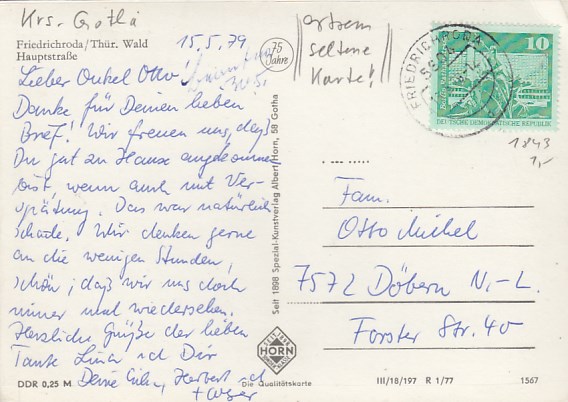 Krs. Gotha
Friedrichroda/Thür. Wald
Hauptstraße
15.5.79
75 Jahre
extrem
seltene
Karte!
FRIEDRICHRODA
10
DEUTSCHE DEMOKRATISCHE REPUBLIK
1843
1,-
Lieber Onkel Otto!
Danke für Deinen lieben
Brief! Wir freuen uns, daß
Du gut zu Hause angekommen
bist, wenn auch mit Ver-
spätung. Das war natürlich
schade. Wir denken gerne
an die wenigen Stunden,
schön, daß wir uns doch
immer mal wiedersehen.
Herzliche Grüße der lieben
Tante und Dir
Deine Herbert
+
Fam.
Otto Michel
7572 Döbern N.-L.
Forster Str. 40
Seit 1898 Spezial-Kunstverlag Albert Horn, 58 Gotha
SEIT 1898
HORN
GOTHA
Die Qualitätskarte
DDR 0,25 M
III/18/197 R 1/77
1567